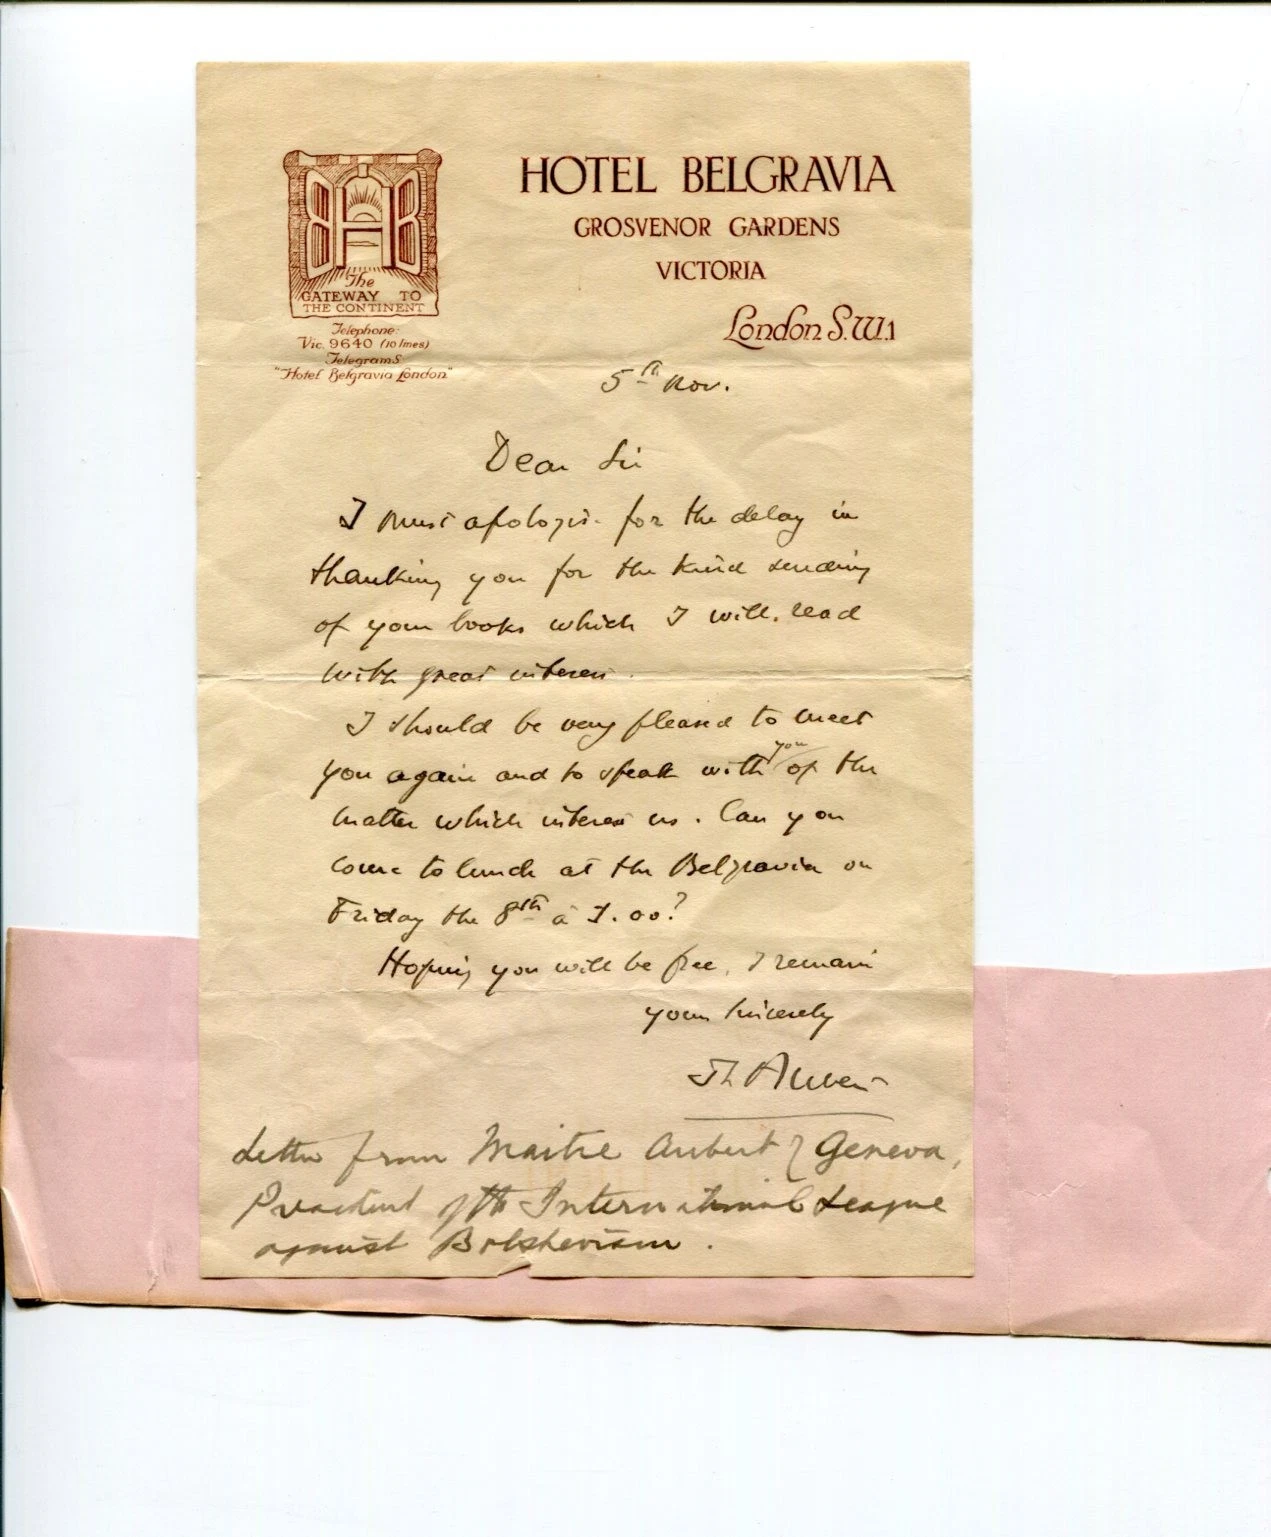 HOTEL BELGRAVIA
GROSVENOR GARDENS
VICTORIA
London S.W.1
The
GATEWAY TO
THE CONTINENT
Telephone:
Vic. 9640 (10 lines)
Telegrams:
"Hotel Belgravia London"
5th Nov.
Dear Sir
I must apologise for the delay in
thanking you for the kind sending
of your books which I will read
with great interest.
I should be very pleased to meet
you again and to speak with you of the
matter which interest us. Can you
come to lunch at the Belgravia on
Friday the 8th à 1.00?
Hoping you will be free, I remain
yours sincerely
Th Aubert
Letter from Maitre Aubert of Geneva,
President of the International League
against Bolshevism.